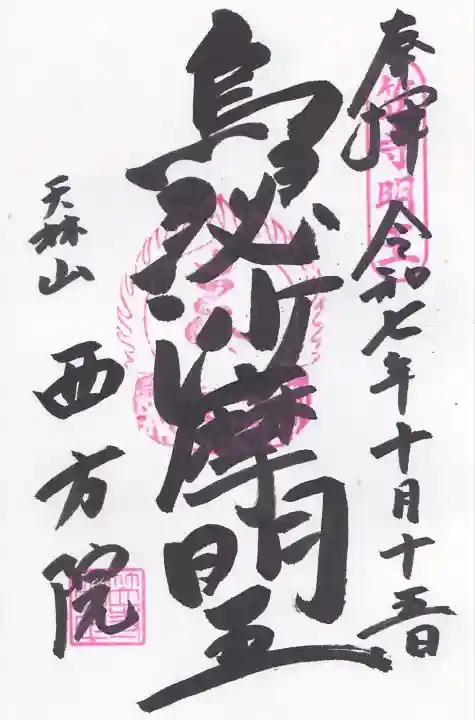 奉拝 令和七年十月十五日
烏瑟沙摩明王
天林山
西方院